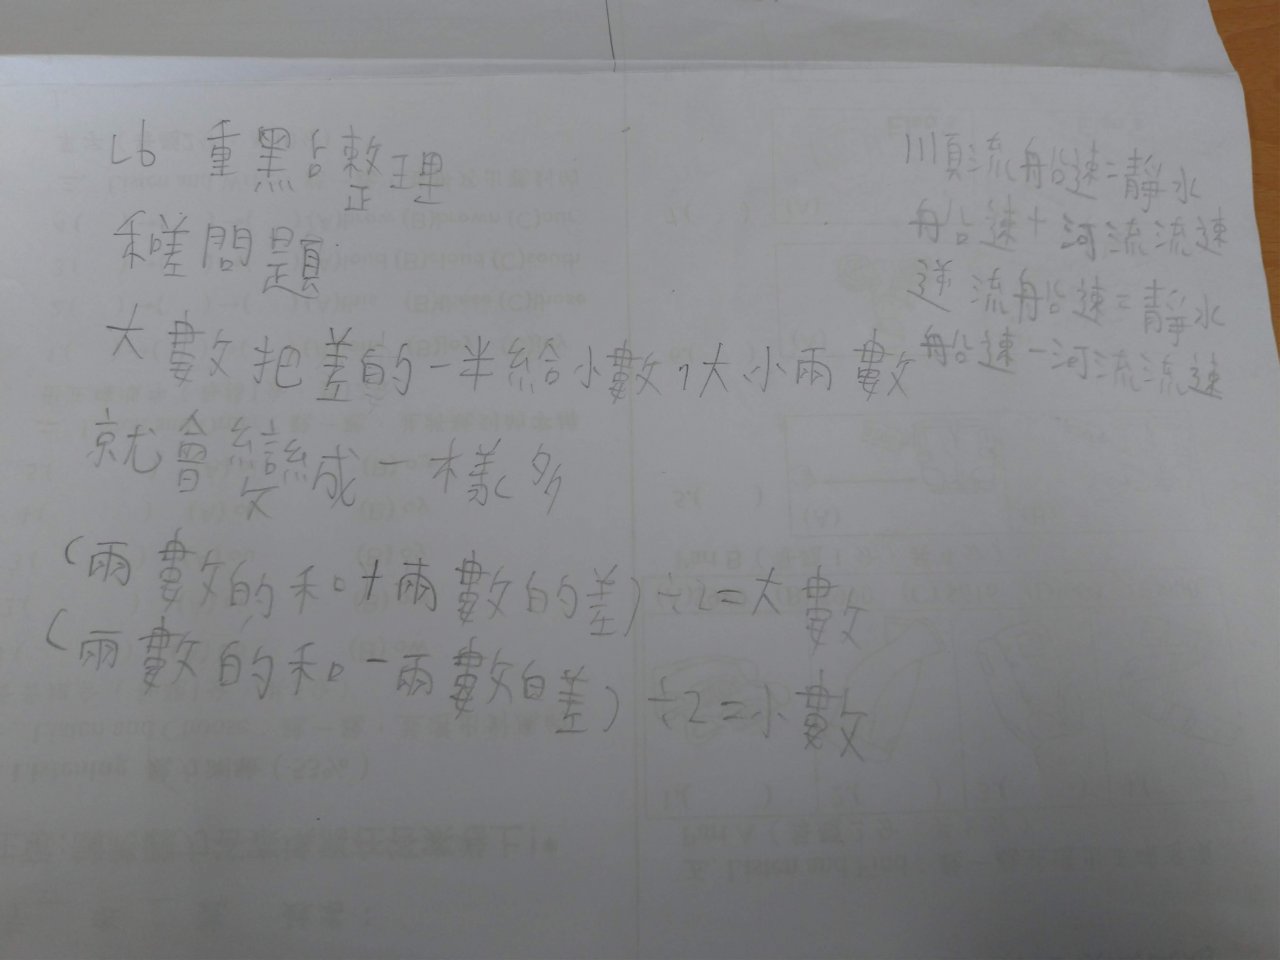 L6 重點整理
和差問題
大數把差的一半給小數,大小兩數
就會變成一樣多
(兩數的和+兩數的差)÷2=大數
(兩數的和-兩數的差)÷2=小數
順流船速=靜水
船速+河流流速
逆流船速=靜水
船速-河流流速